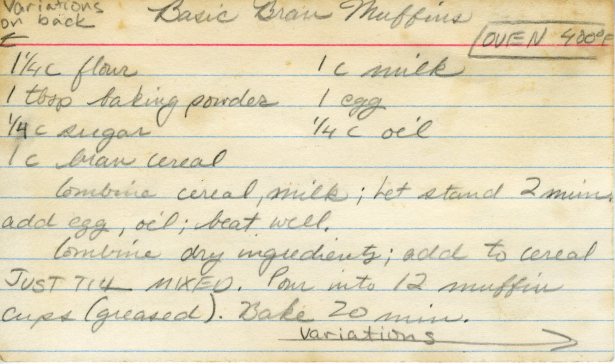 Variations
on back
←
Basic Bran Muffins
OVEN 400°F
1 1/4 c flour 1 c milk
1 tbsp baking powder 1 egg
1/4 c sugar 1/4 c oil
1 c bran cereal
Combine cereal, milk; Let stand 2 min.
add egg, oil; beat well.
Combine dry ingredients; add to cereal
JUST TIL MIXED. Pour into 12 muffin
cups (greased). Bake 20 min.
Variations →